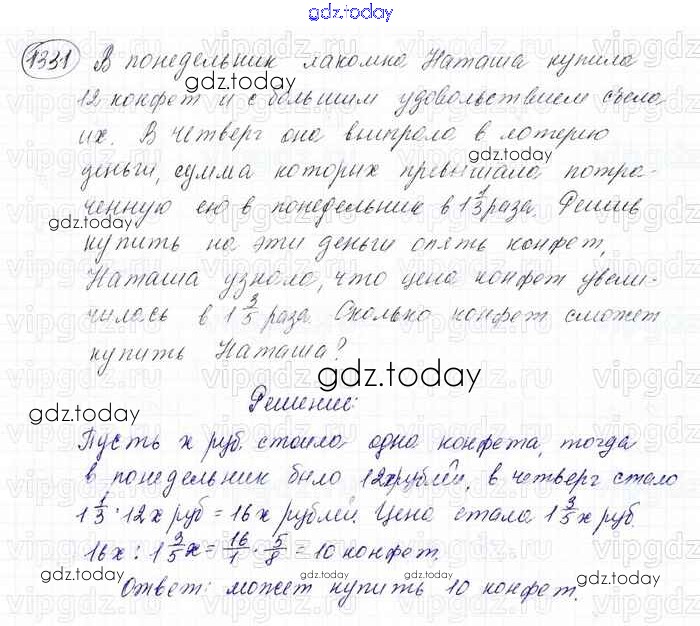 gdz.today
1331 В понедельник лакомка Наташа купила
gdz.today
12 конфет и с большим удовольствием съела
их. В четверг она выиграла в лотерею
gdz.today
деньги, сумма которых превышала потра-
ченную ею в понедельник в 1 1/3 раза. Решив
gdz.today
купить на эти деньги опять конфет,
Наташа узнала, что цена конфет увели-
чилась в 1 3/5 раза. Сколько конфет сможет
купить Наташа?
gdz.today
Решение:
gdz.today
gdz.today
Пусть x руб. стоила одна конфета, тогда
в понедельник было 12x рублей, в четверг стало
1 1/3 · 12x руб = 16x рублей. Цена стала 1 3/5 x руб.
gdz.today
16x : 1 3/5 x = 16/1 · 5/8 = 10 конфет.
gdz.today
Ответ: может купить 10 конфет.